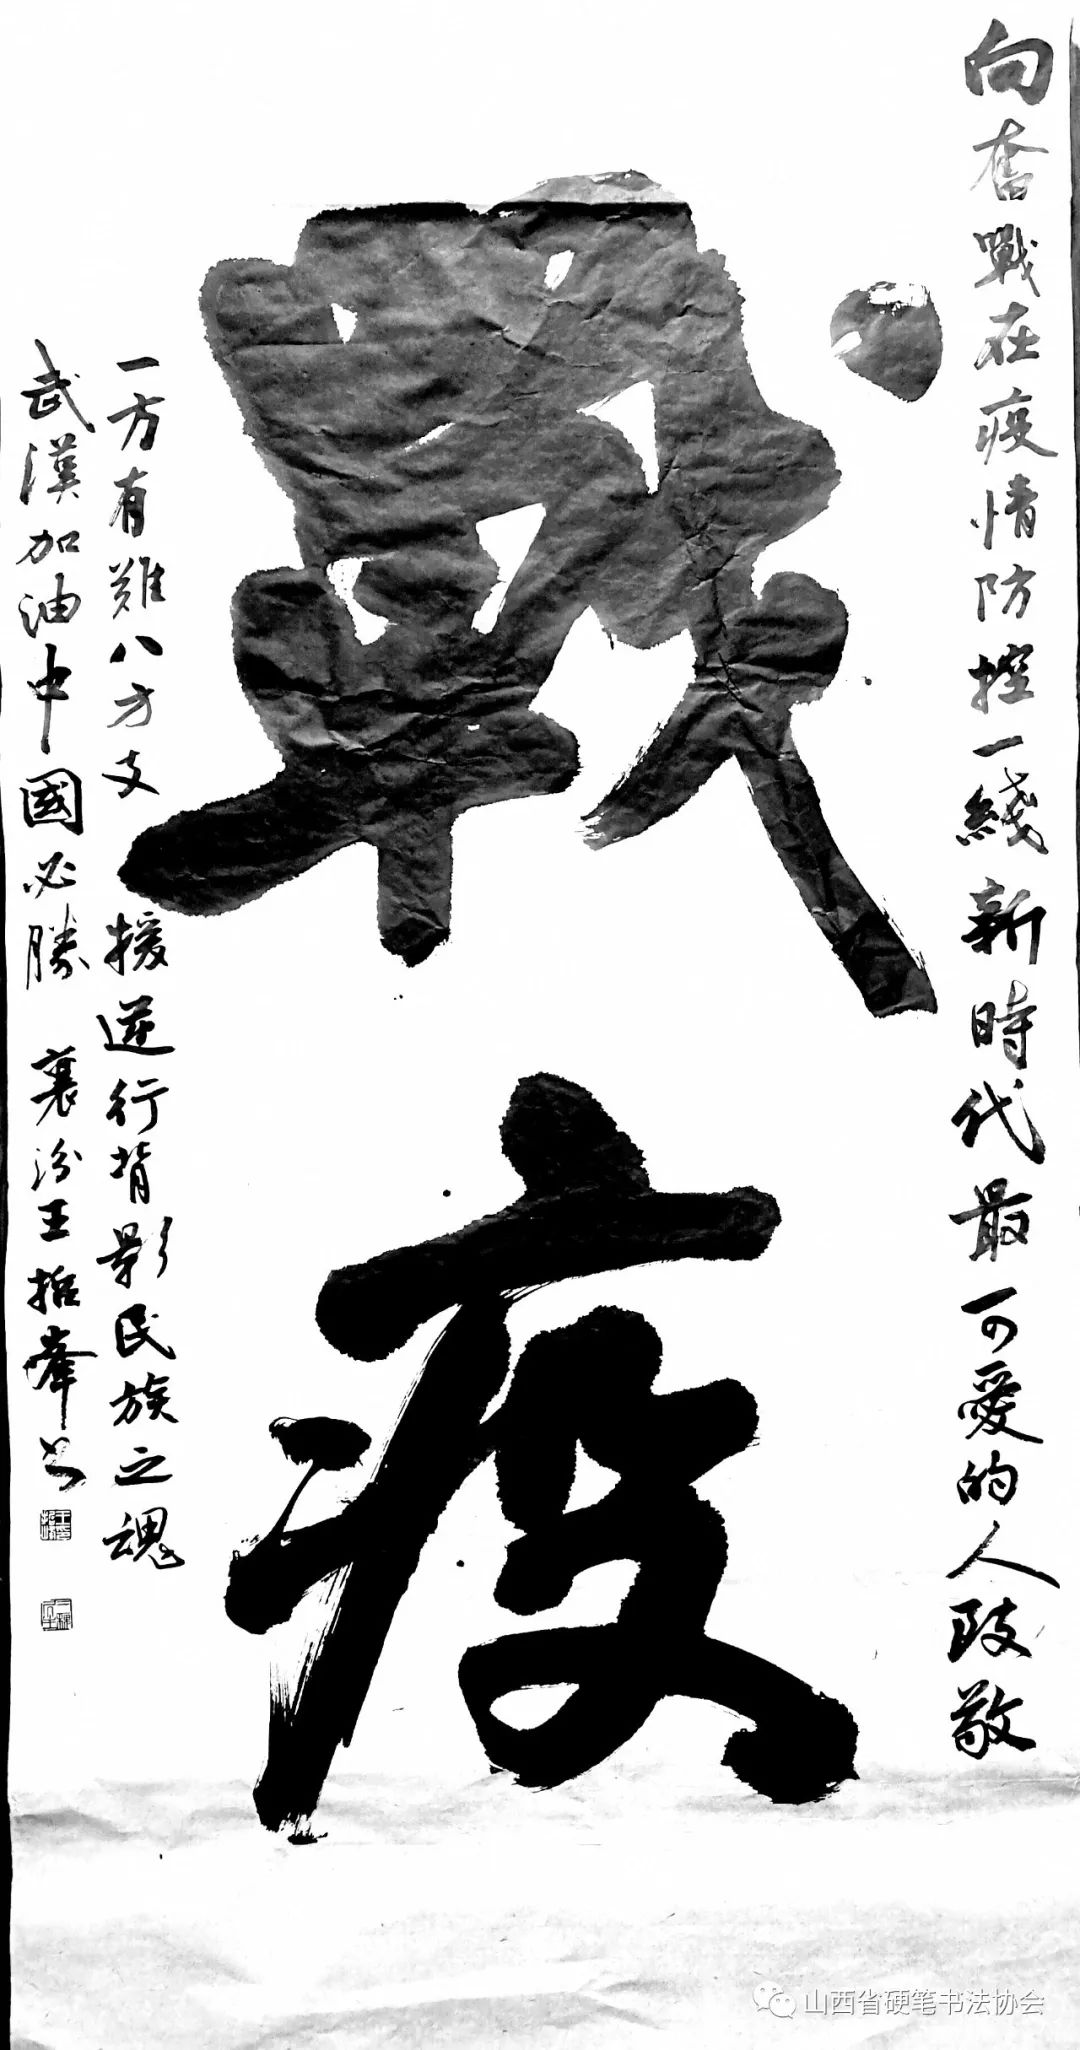 向奮戰在疫情防控一綫新時代最可愛的人致敬
戰疫
一方有難八方支援逆行背影民族之魂
武漢加油中國必勝 襄汾王哲峰书
山西省硬笔书法协会